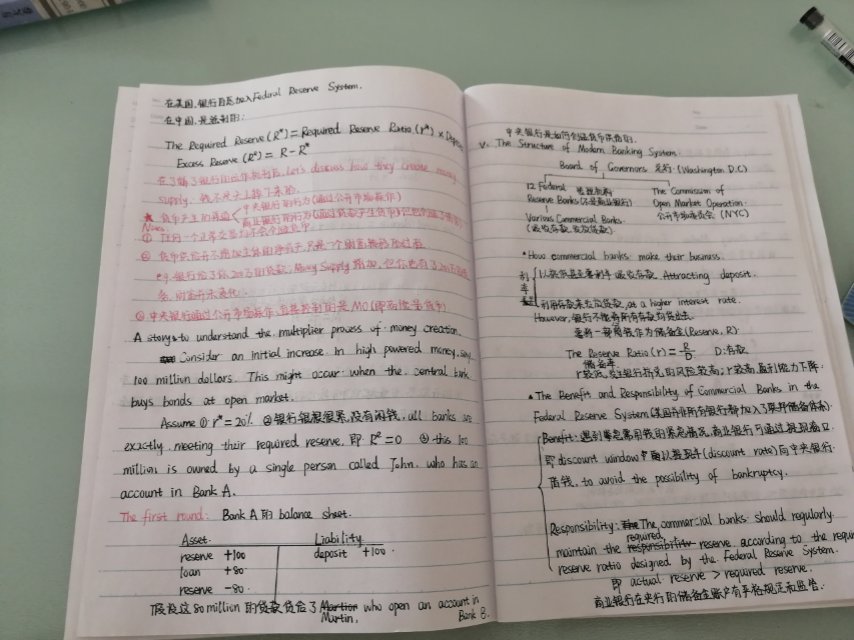 在美国，银行自愿加入Federal Reserve System.
在中国，是强制的：
The Required Reserve (R*) = Required Reserve Ratio (r*) × Depos
Excess Reserve (Rᴱ) = R - R*
在了解了银行的运作机制后，Let's discuss how they create money
supply.
★ 货币产生的渠道 中央银行的行为(通过公开市场操作)
商业银行的行为(通过贷款产生货币
Notes:
① 任何一个正常交易均不会创造货币
② 货币供给并不增加主体的净资产，只是一个
e.g. 银行给了你20万的贷款，Money Supply 增加，但你也有了20万的
务，财富并未变化.
③ 中央银行通过公开市场操作，直接控制的是M0(即高能货币)
A story to understand the multiplier process of money creation.
Consider an initial increase in high powered money, say
100 million dollars. This might occur when the central bank
buys bonds at open market.
Assume ① r* = 20% ②银行很想很紧，没有闲钱，all banks are
exactly meeting their required reserve, 即 Rᴱ = 0 ③ this 100
million is owned by a single person called John, who has an
account in Bank A.
The first round: Bank A 的 balance sheet.
Asset Liability
reserve +100 deposit +100
loan +80
reserve -80
假设这80 million 的贷款贷给了 Martin, who open an account in
Bank B.
中央银行是如何创造货币供给的.
V. The Structure of Modern Banking System.
Board of Governors 央行 (Washington D.C)
12 Federal Reserve Banks (不是商业银行)
The Commission of
Open Market Operation
公开市场委员会 (NYC)
Various Commercial Banks
(吸收存款，发放贷款)
• How commercial banks make their business.
利率 吸收存款, Attracting deposit.
利用存款来发放贷款, at a higher interest rate.
However, 银行不能将所有存款均贷出去
要有一部分钱作为储备金(Reserve, R)
The Reserve Ratio (r) = R/D D: 存款
储备率
r较低，则银行挤兑的风险较高；r较高，盈利能力下降.
• The Benefit and Responsibility of Commercial Banks in the
Federal Reserve System (美国并非所有银行都加入了联邦储备体系)
Benefit: 遇到紧急需用钱的紧急情况，商业银行可通过贴现窗口
即discount window 以贴现率(discount rate)向中央银行
借钱, to avoid the possibility of bankruptcy.
Responsibility: The commercial banks should regularly
maintain the required reserve according to the requir
reserve ratio designed by the Federal Reserve System.
即 actual reserve > required reserve.
商业银行在央行的储备金账户有严格规定和监管.